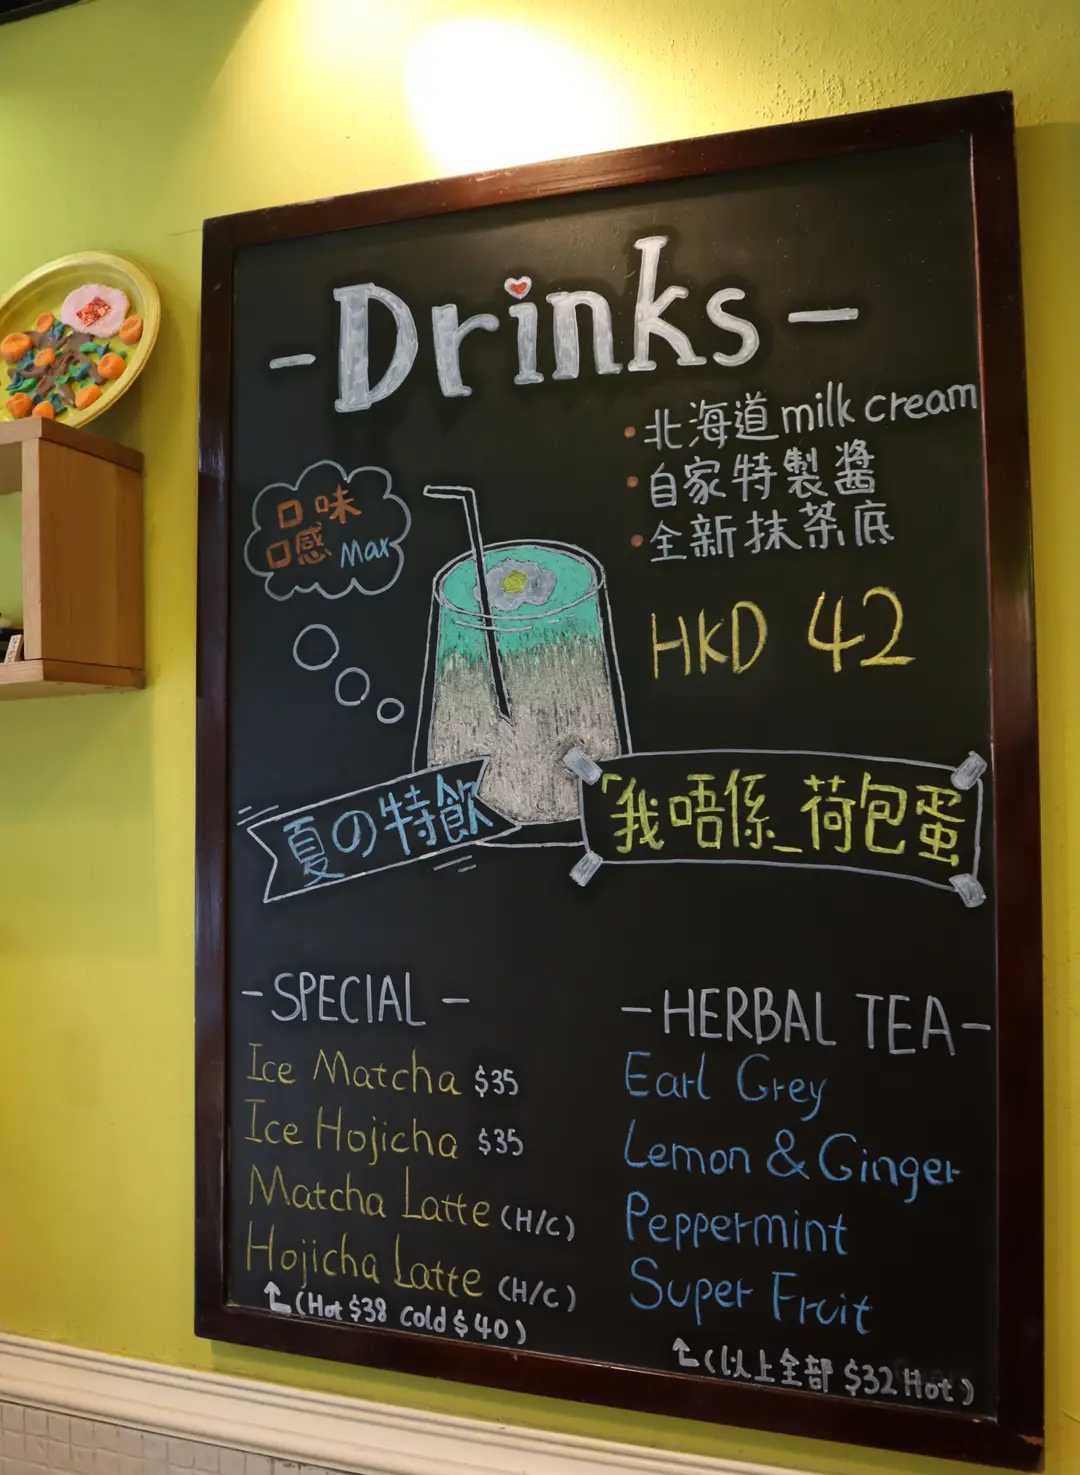 - Drinks -
・北海道 milk cream
・自家特製醬
・全新抹茶底
口味
口感 Max
HKD 42
夏の特飲
「我唔係_荷包蛋
- SPECIAL -
Ice Matcha $35
Ice Hojicha $35
Matcha Latte (H/C)
Hojicha Latte (H/C)
(Hot $38 Cold $40)
- HERBAL TEA -
Earl Grey
Lemon & Ginger
Peppermint
Super Fruit
(以上全部 $32 Hot)